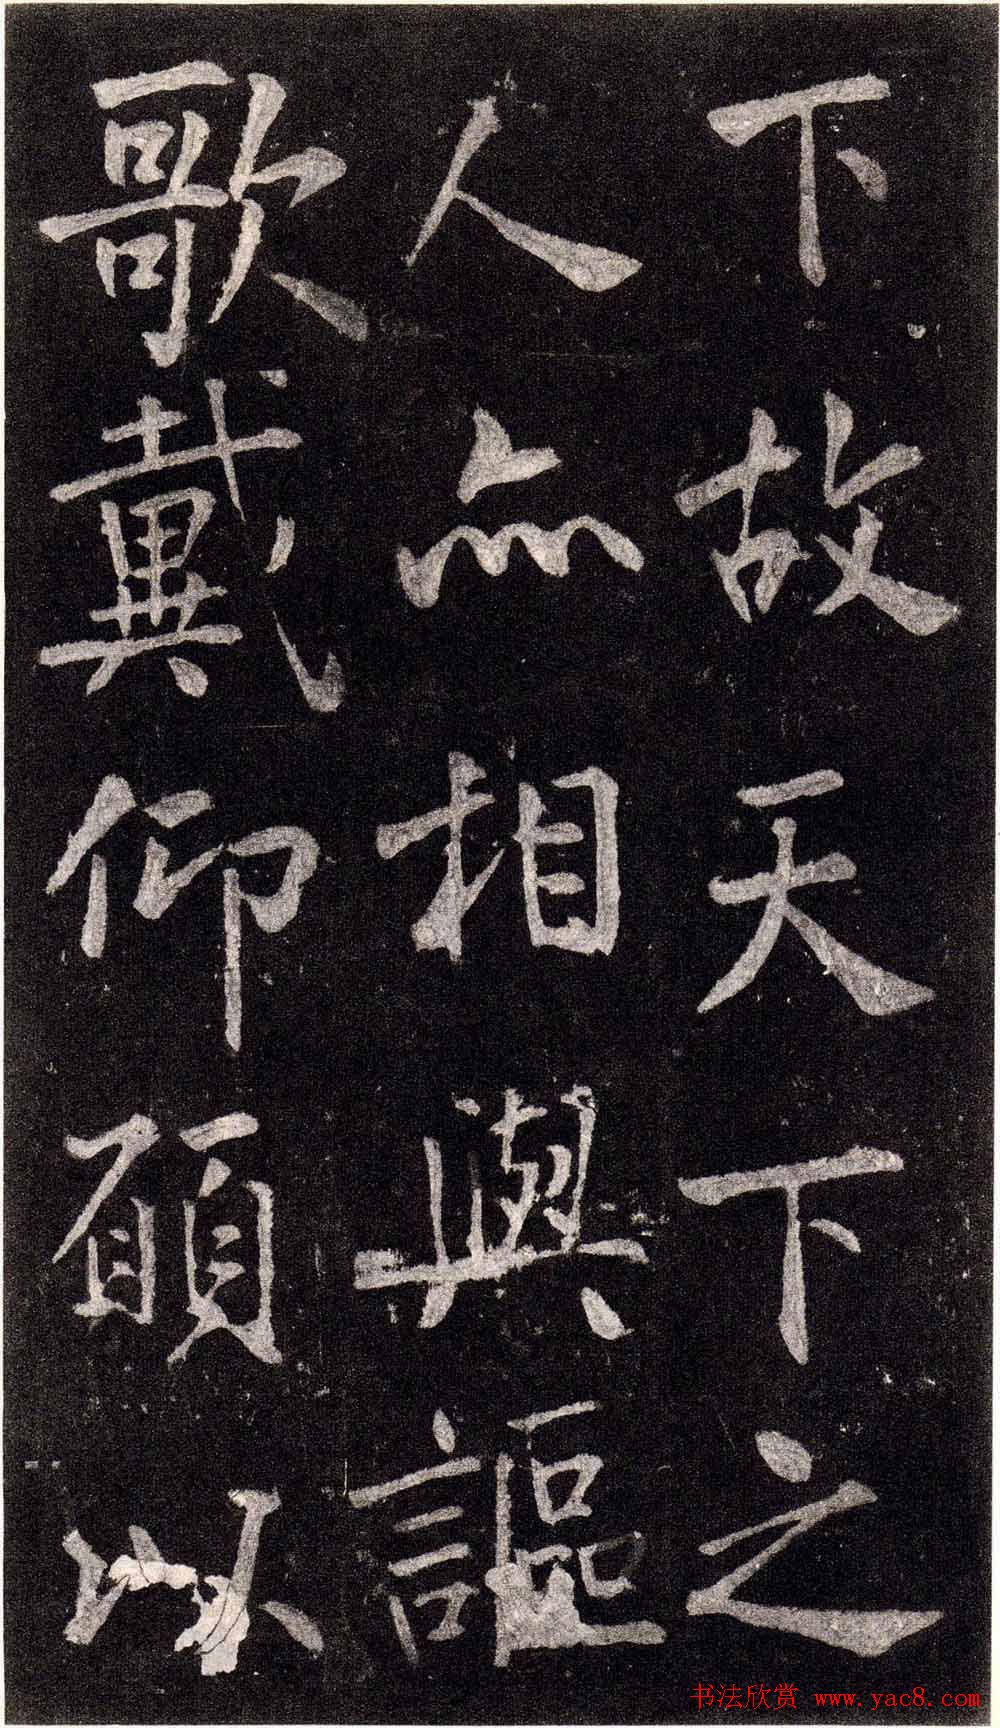 下故天下之
人亦相與謳
歌戴仰願以
书法欣赏 www.yac8.com